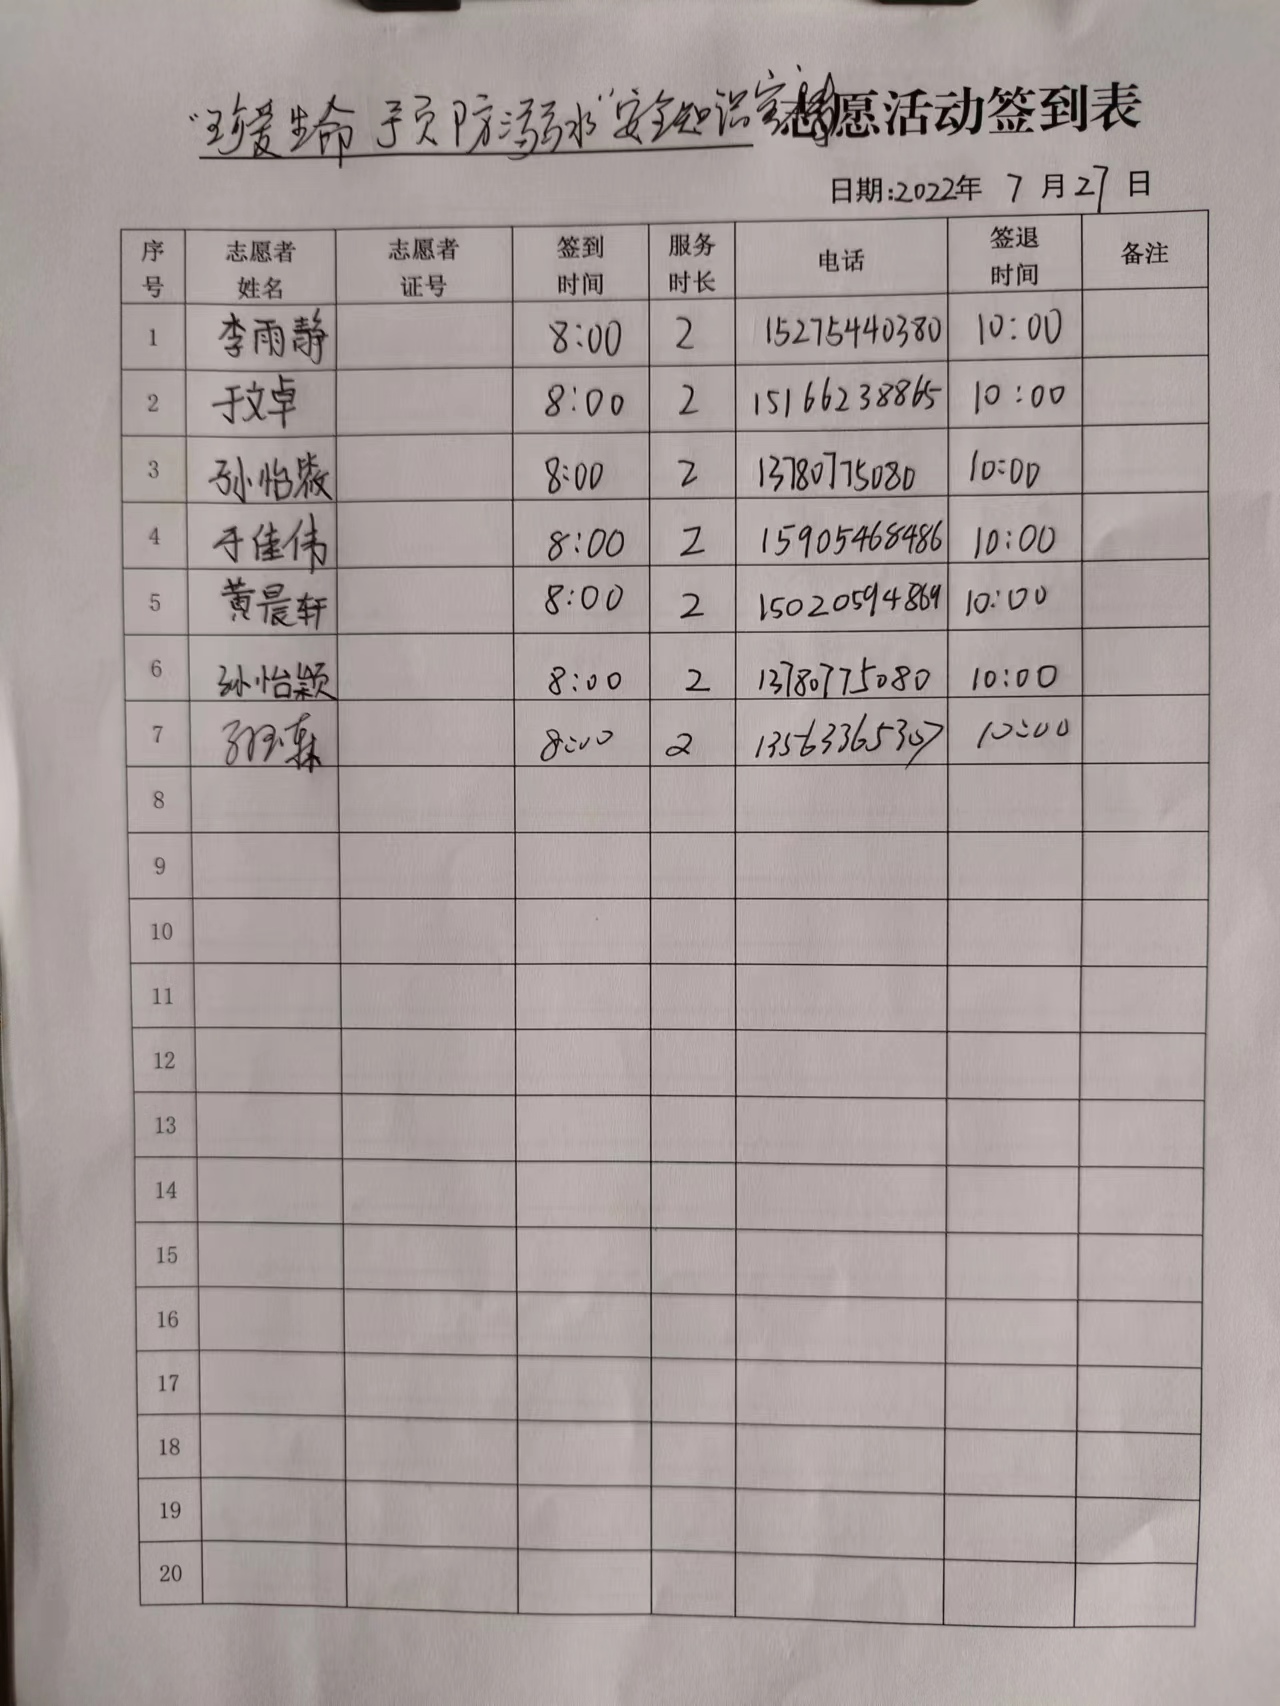 “珍爱生命 预防溺水”安全知识宣讲志愿活动签到表
日期:2022年 7 月 27 日
序号 志愿者姓名 志愿者证号 签到时间 服务时长 电话 签退时间 备注
1 李雨静 8:00 2 15275440380 10:00
2 于文卓 8:00 2 15166238865 10:00
3 孙怡 8:00 2 13780775080 10:00
4 于佳伟 8:00 2 15905468486 10:00
5 黄晨轩 8:00 2 15020594869 10:00
6 孙怡颖 8:00 2 13780775080 10:00
7 8:00 2 13563365307 10:00
8
9
10
11
12
13
14
15
16
17
18
19
20